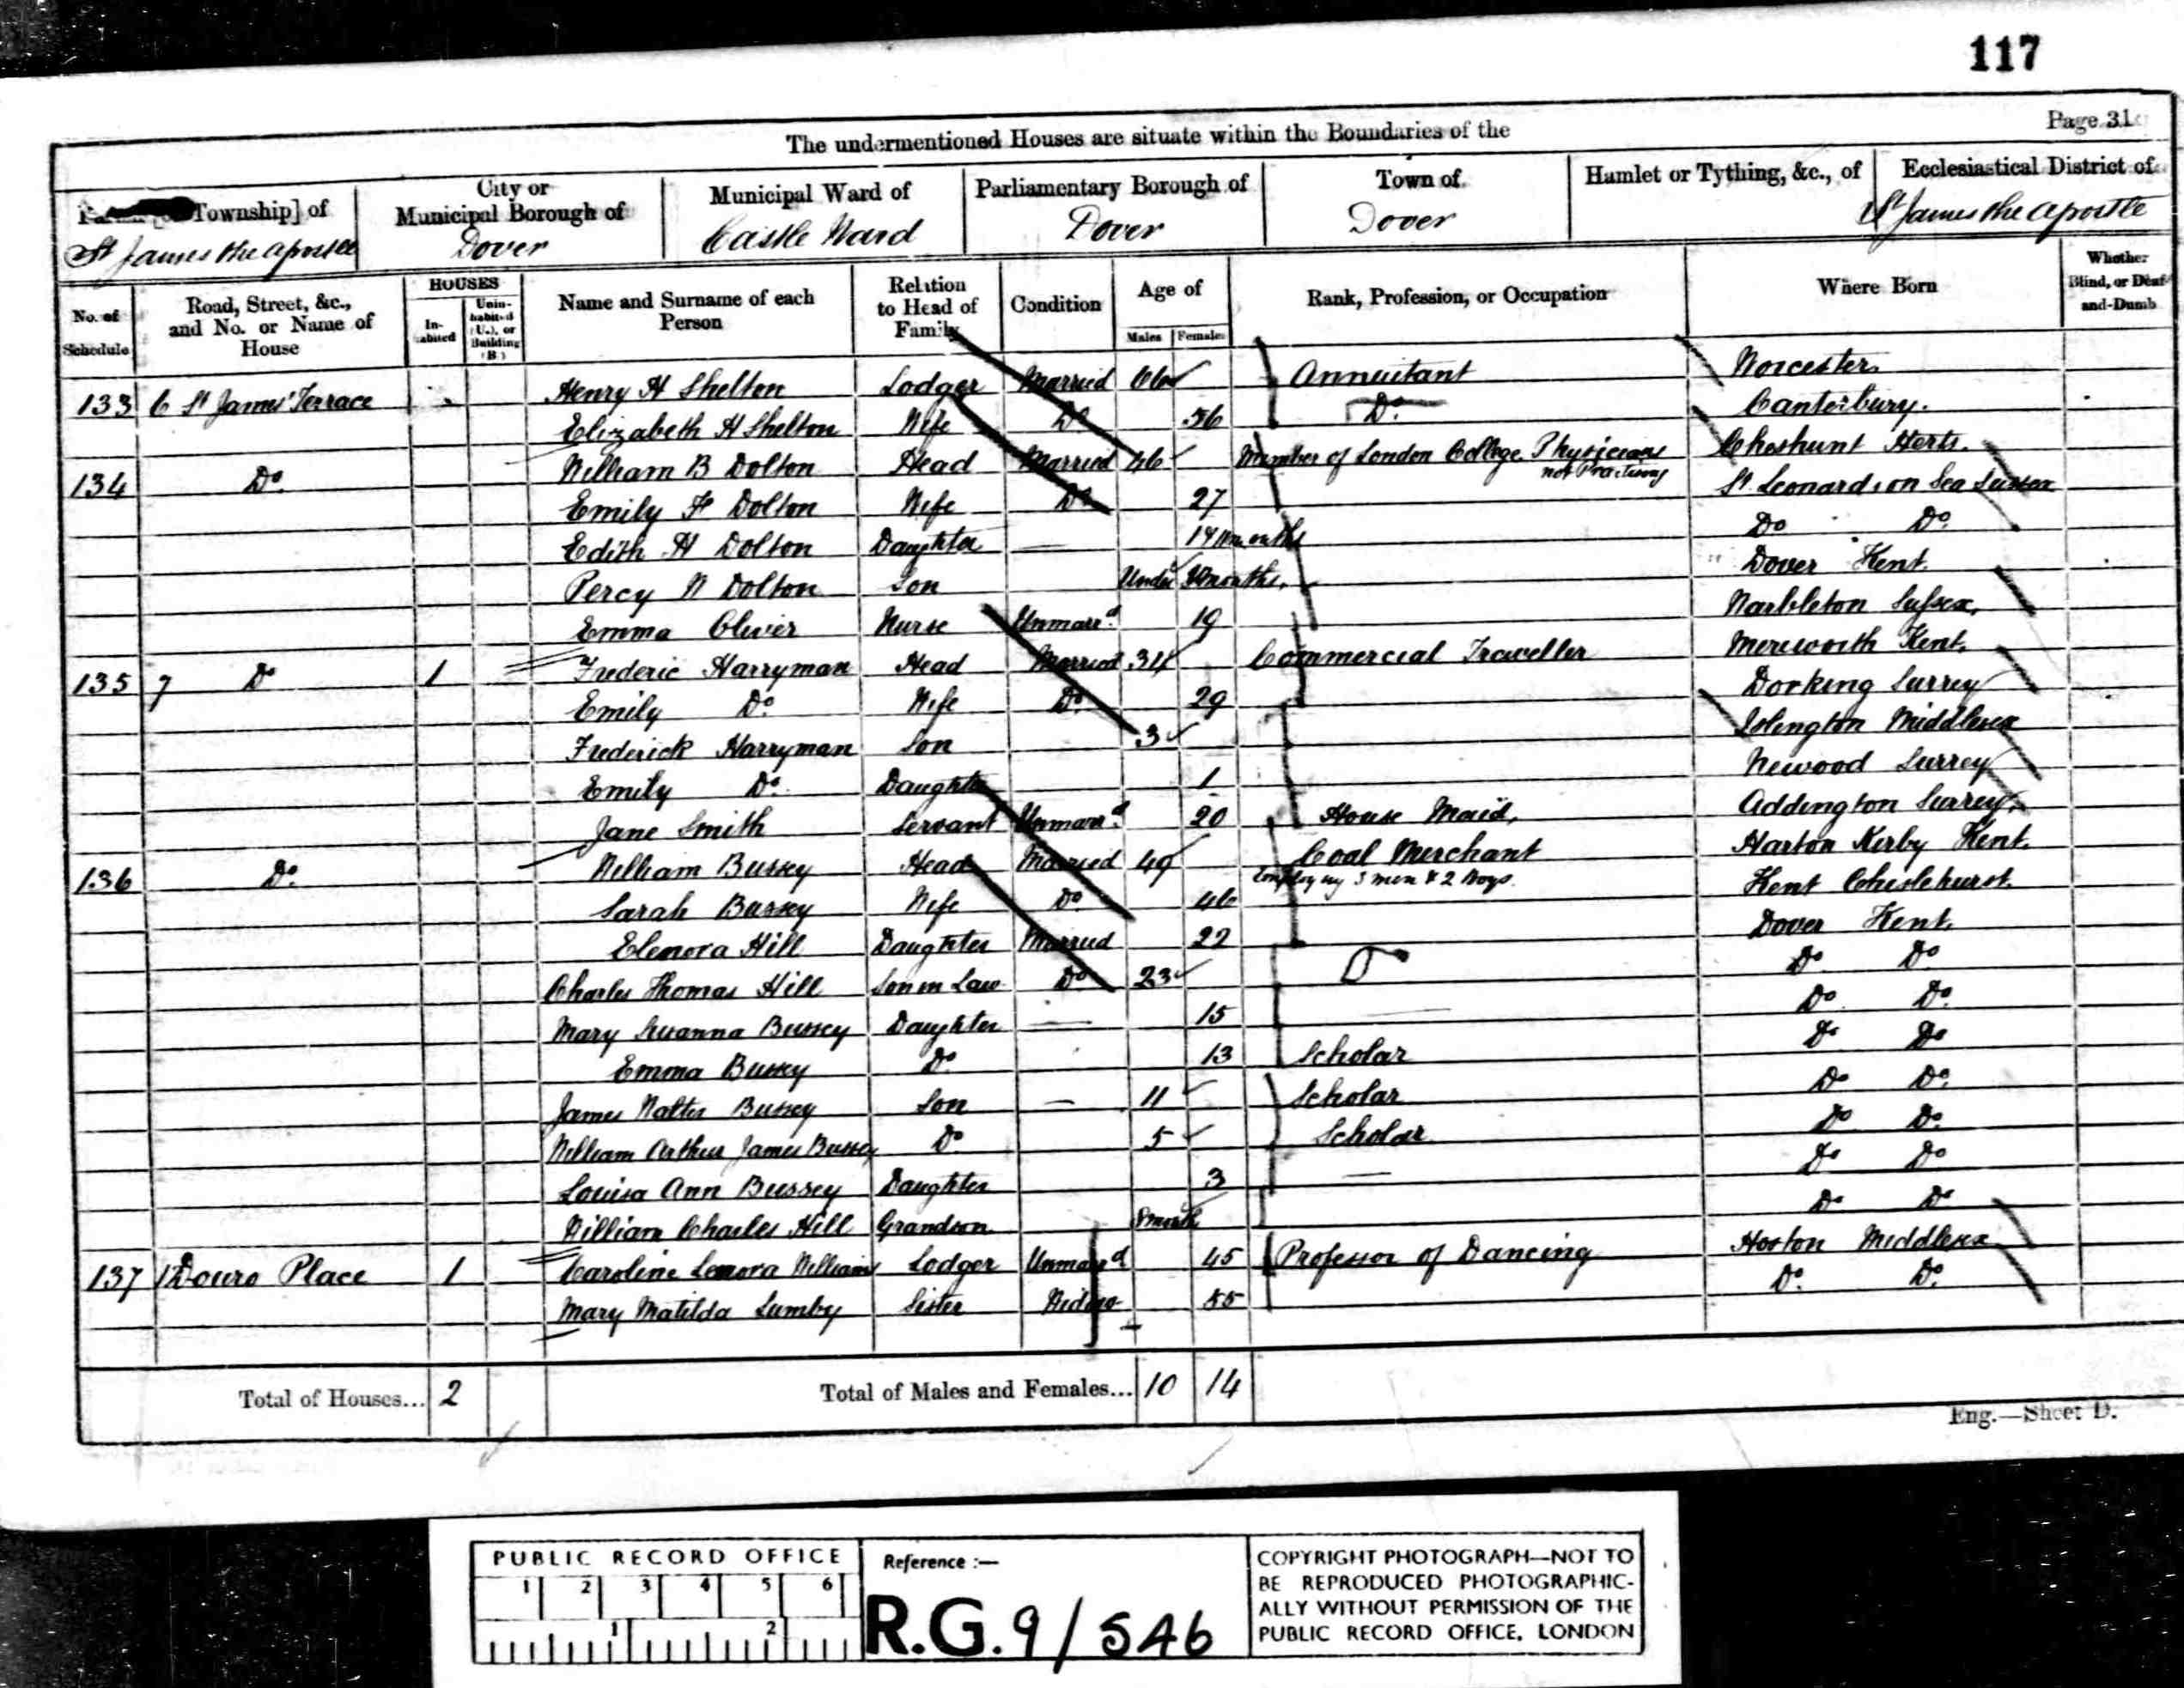 117
The undermentioned Houses are situate within the Boundaries of the
Page 31
Township] of
City or Municipal Borough of
Municipal Ward of
Parliamentary Borough of
Town of
Hamlet or Tything, &c., of
Ecclesiastical District of
St James the Apostle
Dover
Castle Ward
Dover
Dover
St James the Apostle
No. of Schedule
Road, Street, &c., and No. or Name of House
HOUSES
In-habited
Unin-habited (U.), or Building (B.)
Name and Surname of each Person
Relation to Head of Family
Condition
Age of
Males
Females
Rank, Profession, or Occupation
Where Born
Whether Blind, or Deaf-and-Dumb
133 6 St James' Terrace Henry H Shelton Lodger Married 66 Annuitant Worcester
Elizabeth H Shelton Wife Do 56 Do Canterbury.
134 Do William B Dolton Head Married 46 Member of London College Physicians not Practising Cheshunt Herts.
Emily F Dolton Wife Do 27 St Leonards on Sea Sussex
Edith H Dolton Daughter 14 months Do Do
Percy W Dolton Son Under months. Dover Kent
Emma Oliver Nurse Unmarrd 19 Warbleton Sussex.
135 7 Do 1 Frederic Harryman Head Married 34 Commercial Traveller Mereworth Kent.
Emily Do Wife Do 29 Dorking Surrey
Frederick Harryman Son 3 Islington Middlesex
Emily Do Daughter 1 Newood Surrey
Jane Smith Servant Unmarrd 20 House Maid. Addington Surrey.
136 Do William Bussey Head Married 49 Coal Merchant Employing 3 men & 2 Boys. Harton Kirby Kent.
Sarah Bussey Wife Do 46 Kent Chislehurst.
Elenora Hill Daughter Married 22 Dover Kent.
Charles Thomas Hill Son in Law Do 23 Do Do
Mary Susanna Bussey Daughter 15 Do Do
Emma Bussey Do 13 Scholar Do Do
James Walter Bussey Son 11 Scholar Do Do
William Arthur James Bussey Do 5 Scholar Do Do
Louisa Ann Bussey Daughter 3 Do Do
William Charles Hill Grandson 8 month Do Do
137 1 Douro Place 1 Caroline Lenora Williams Lodger Unmarrd 45 Professor of Dancing Hoxton Middlesex
Mary Matilda Lumby Sister Widow 55 Do Do
Total of Houses... 2
Total of Males and Females... 10 14
Eng.—Sheet D.
PUBLIC RECORD OFFICE
1 2 3 4 5 6
1 2
Reference :—
R.G. 9/546
COPYRIGHT PHOTOGRAPH—NOT TO
BE REPRODUCED PHOTOGRAPHIC-
ALLY WITHOUT PERMISSION OF THE
PUBLIC RECORD OFFICE, LONDON